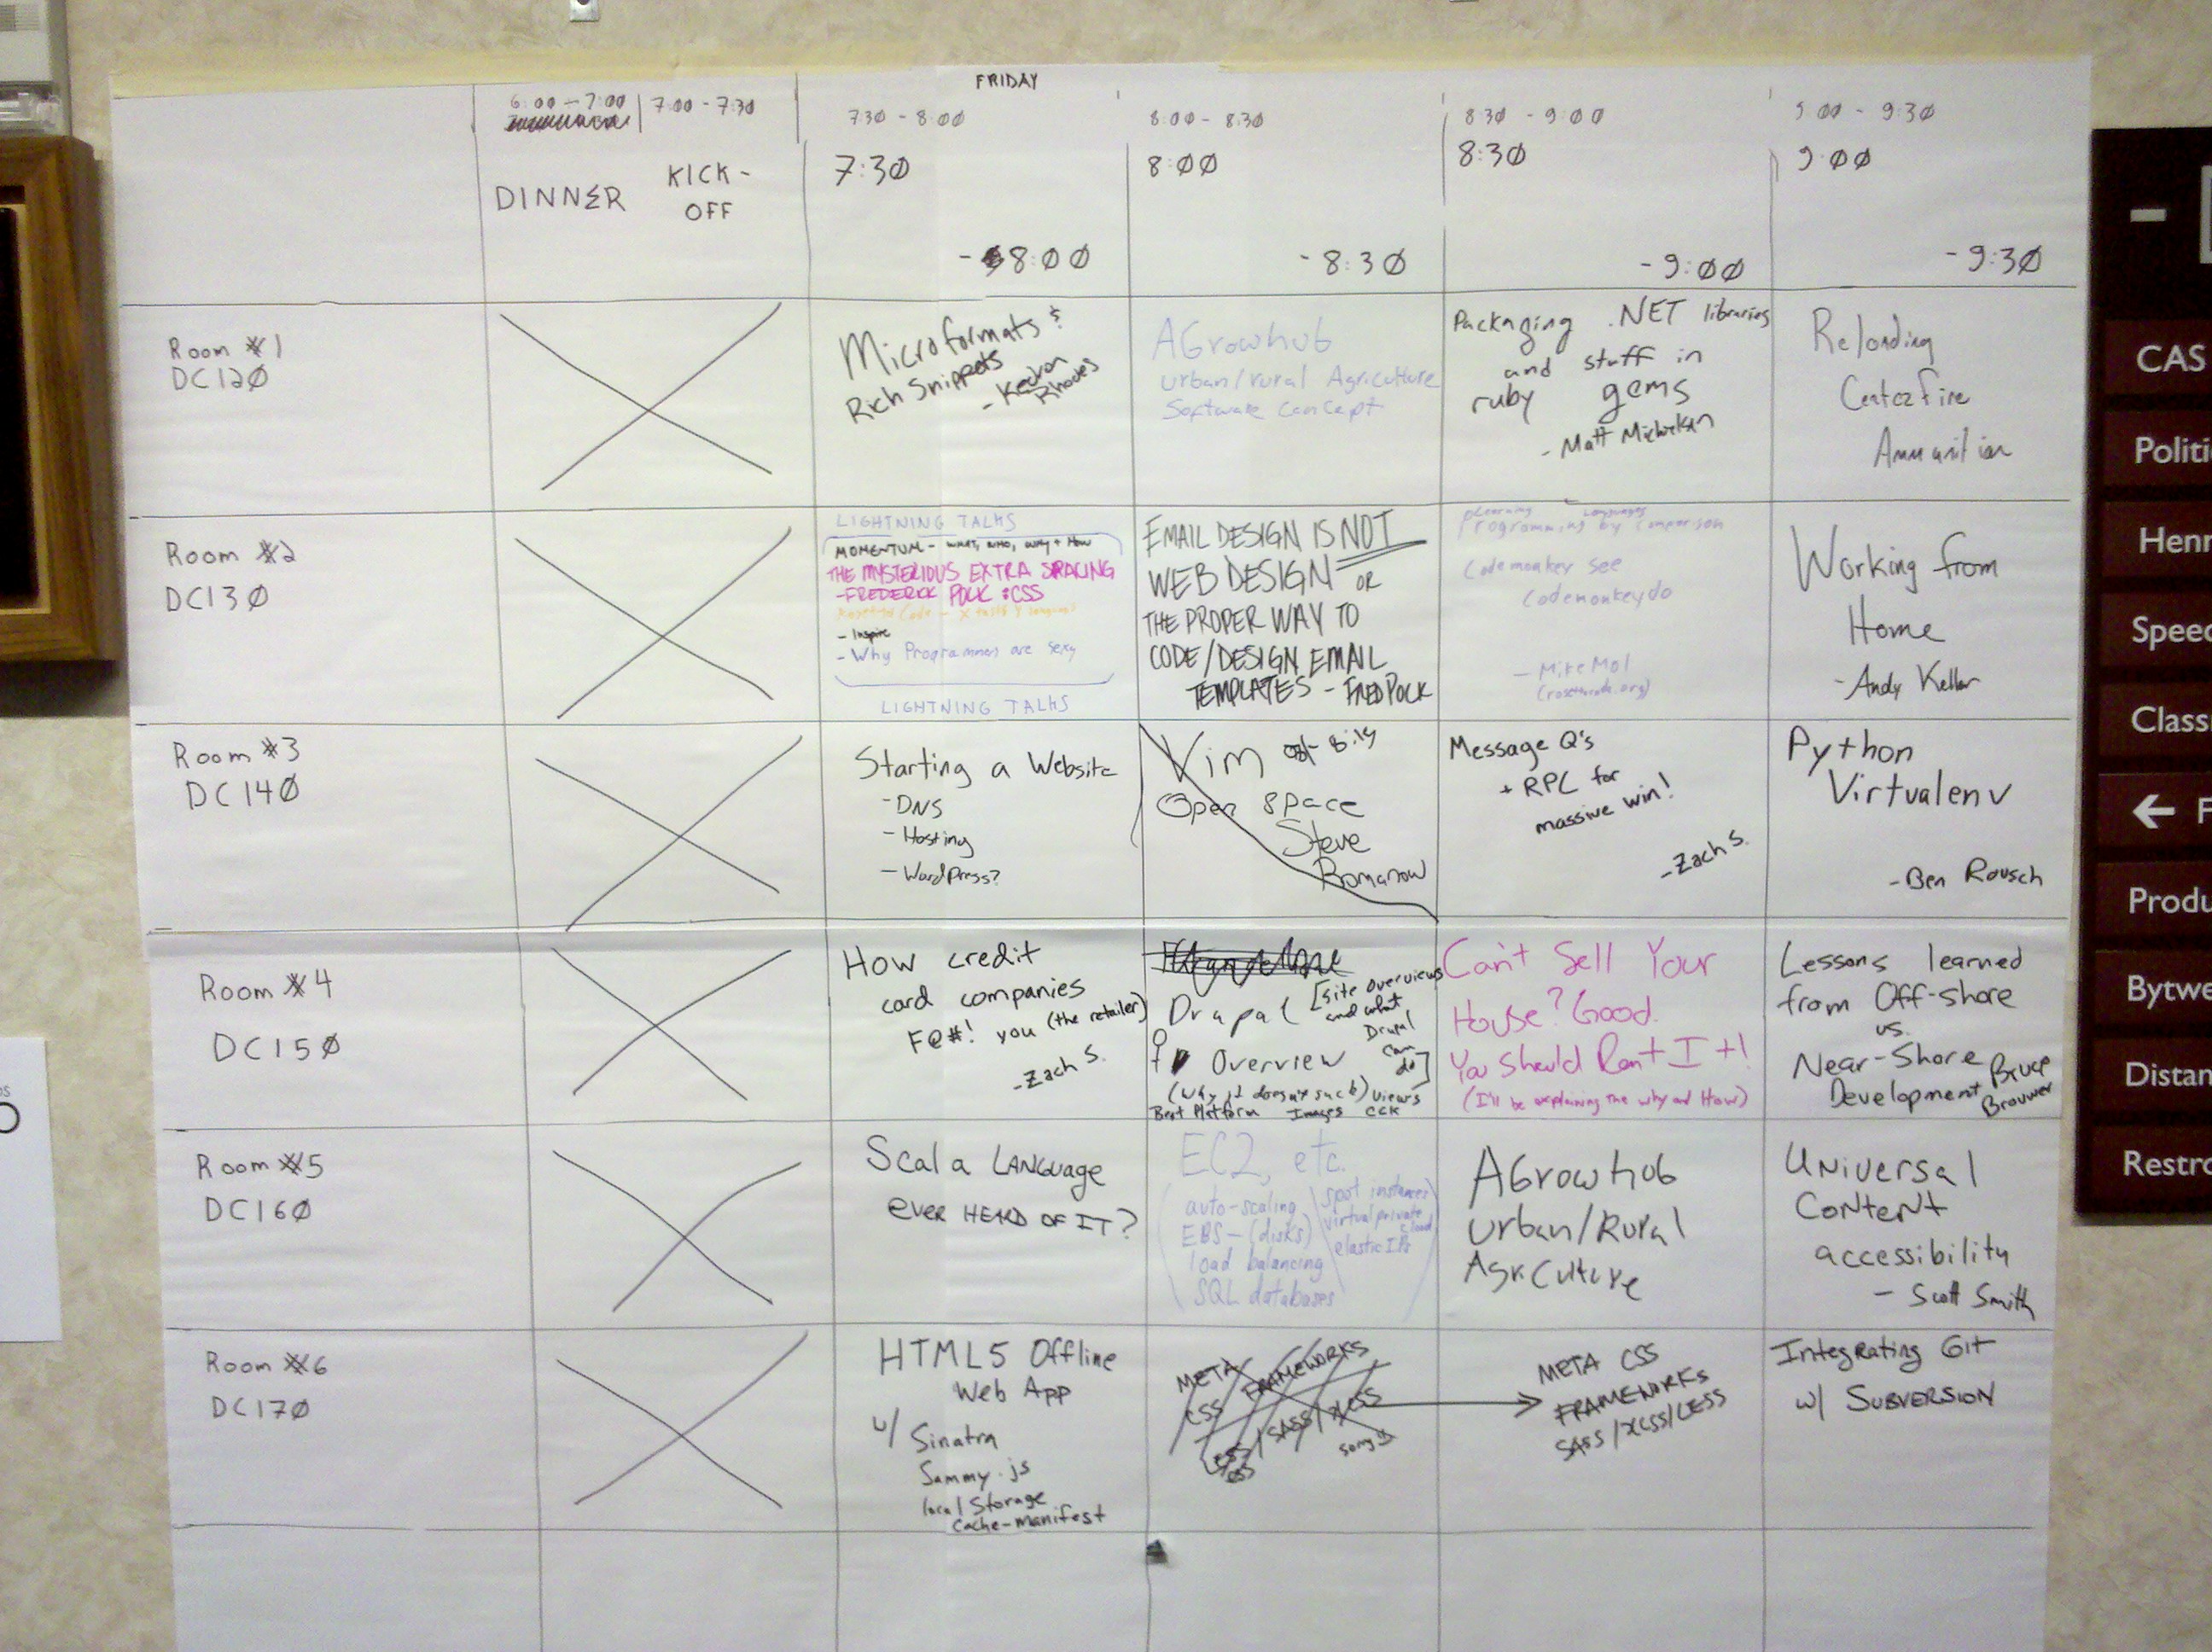 FRIDAY
6:00 - 7:00
7:00 - 7:30
7:30 - 8:00
8:00 - 8:30
8:30 - 9:00
9:00 - 9:30
DINNER
KICK-
OFF
7:30
- 8:00
8:00
- 8:30
8:30
- 9:00
9:00
- 9:30
Room #1
DC120
Microformats &
Rich Snippets
- Keidron
Rhodes
AGrowhub
urban/rural Agriculture
Software concept
Packaging .NET libraries
and stuff in
ruby gems
- Matt
Reloading
Centerfire
Ammunition
Room #2
DC130
LIGHTNING TALKS
MOMENTUM - WHAT, WHO, WHY + HOW
THE MYSTERIOUS EXTRA SPACING
- FREDERICK POLK : CSS
Code -
- Inspire
- Why Programmers are Sexy
LIGHTNING TALKS
EMAIL DESIGN IS NOT
WEB DESIGN OR
THE PROPER WAY TO
CODE/DESIGN EMAIL
TEMPLATES - FRED POLK
Learning Languages
Programming by Comparison
Codemonkey see
Codemonkey do
- Mike Mol
Working from
Home
- Andy Keller
Room #3
DC140
Starting a Website
- DNS
- Hosting
- WordPress?
Vim at 8:14
Open Space
Steve
Romanow
Message Q's
+ RPC for
massive win!
- Zach S.
Python
Virtualenv
- Ben Rousch
Room #4
DC150
How credit
card companies
F@#! you (the retailer)
- Zach S.
Drupal [site overviews
and what
Drupal
can
do]
Overview
(Why it doesn't suck) Views
Best Platform Images CCK
Can't Sell Your
House? Good.
You Should Rent It!
(I'll be explaining the why and How)
Lessons learned
from Off-shore
vs.
Near-Shore
Development Bruce
Brouwer
Room #5
DC160
Scala LANGUAGE
EVER HEARD OF IT?
EC2, etc.
auto-scaling
EBS - (disks)
load balancing
SQL databases
spot instances
virtual private
cloud
elastic IPs
AGrowhub
Urban/Rural
Agriculture
Universal
Content
accessibility
- Scott Smith
Room #6
DC170
HTML5 Offline
Web App
w/ Sinatra
Sammy.js
local Storage
Cache-manifest
META FRAMEWORKS
CSS
SASS/XCSS
META CSS
FRAMEWORKS
SASS/XCSS/LESS
Integrating Git
w/ SUBVERSION
CAS
Politi
Henr
Speec
Class
← F
Produ
Bytwe
Distan
Restro